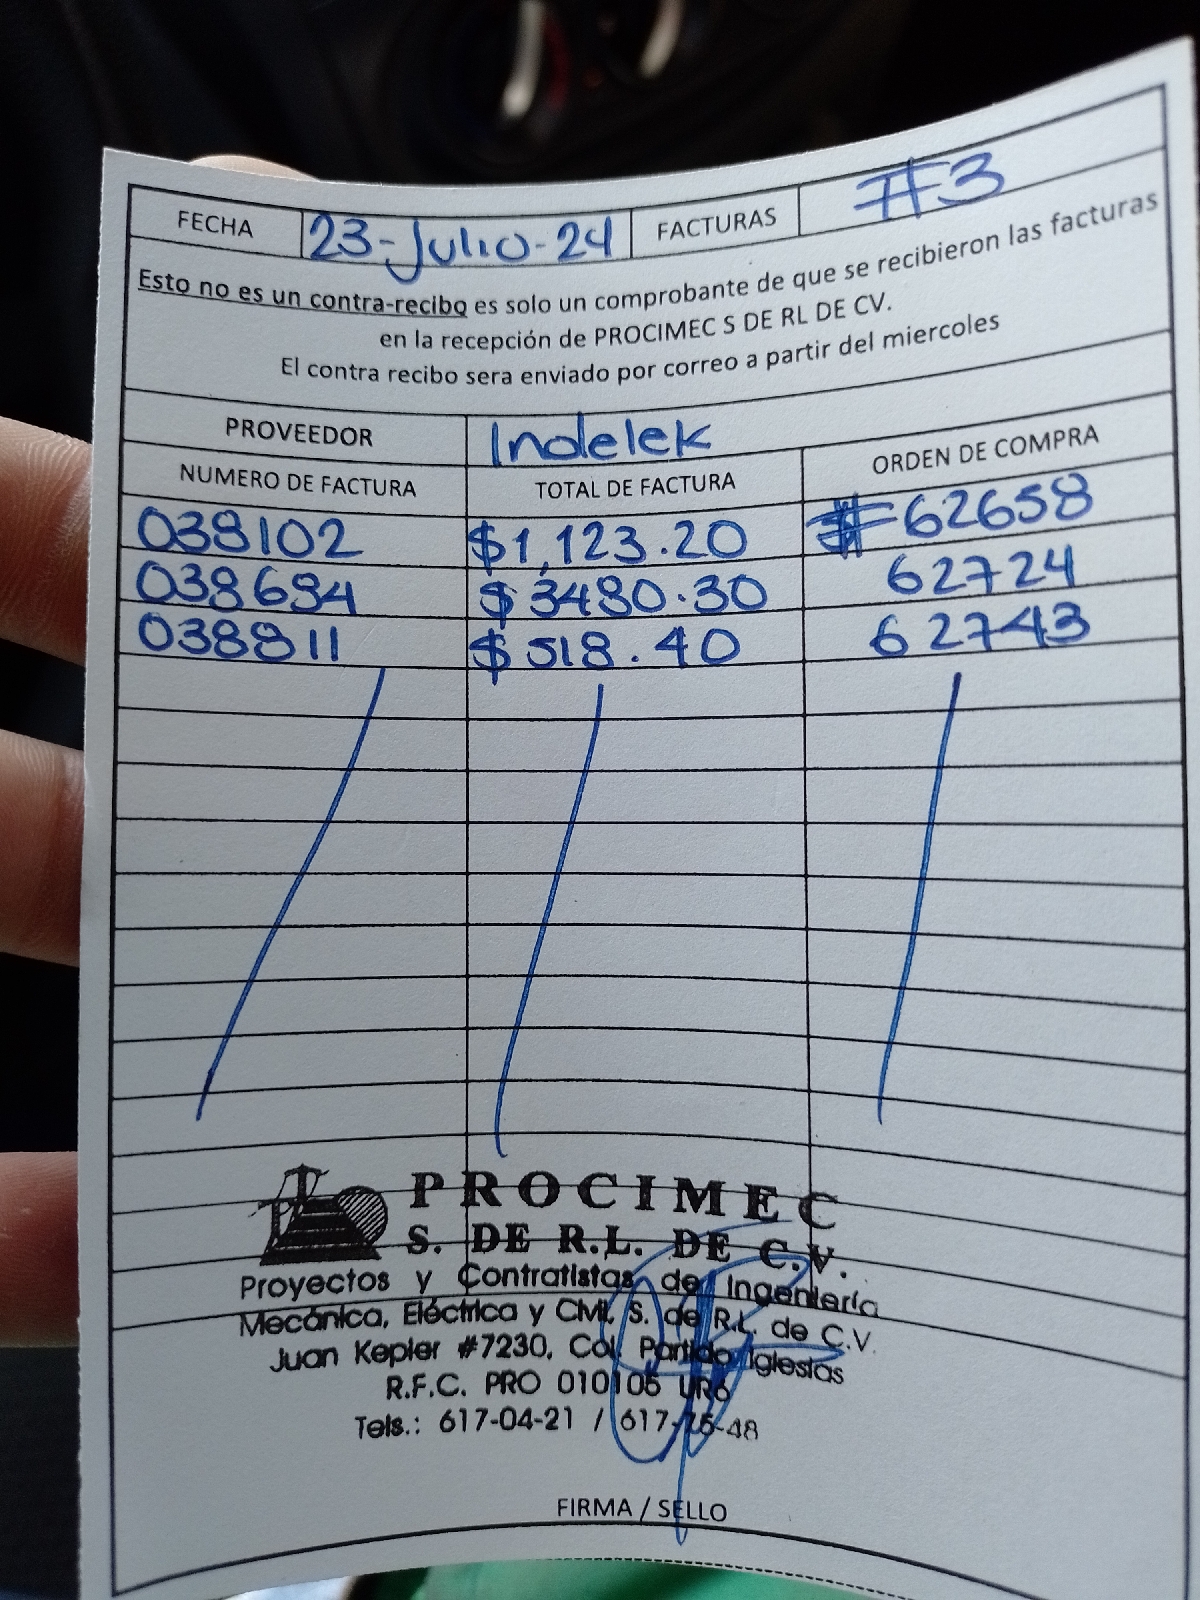 FECHA 23-Julio-24 FACTURAS #3
Esto no es un contra-recibo es solo un comprobante de que se recibieron las facturas
en la recepción de PROCIMEC S DE RL DE CV.
El contra recibo sera enviado por correo a partir del miercoles
PROVEEDOR Indelek
NUMERO DE FACTURA TOTAL DE FACTURA ORDEN DE COMPRA
038102 $1,123.20 #62658
038694 $3480.30 62724
038811 $518.40 62743
PROCIMEC
S. DE R.L. DE C.V.
Proyectos y Contratistas de Ingeniería
Mecánica, Eléctrica y Civil, S. de R.L. de C.V.
Juan Kepler #7230, Col. Partido Iglesias
R.F.C. PRO 010105 UR6
Tels.: 617-04-21 / 617-75-48
FIRMA / SELLO